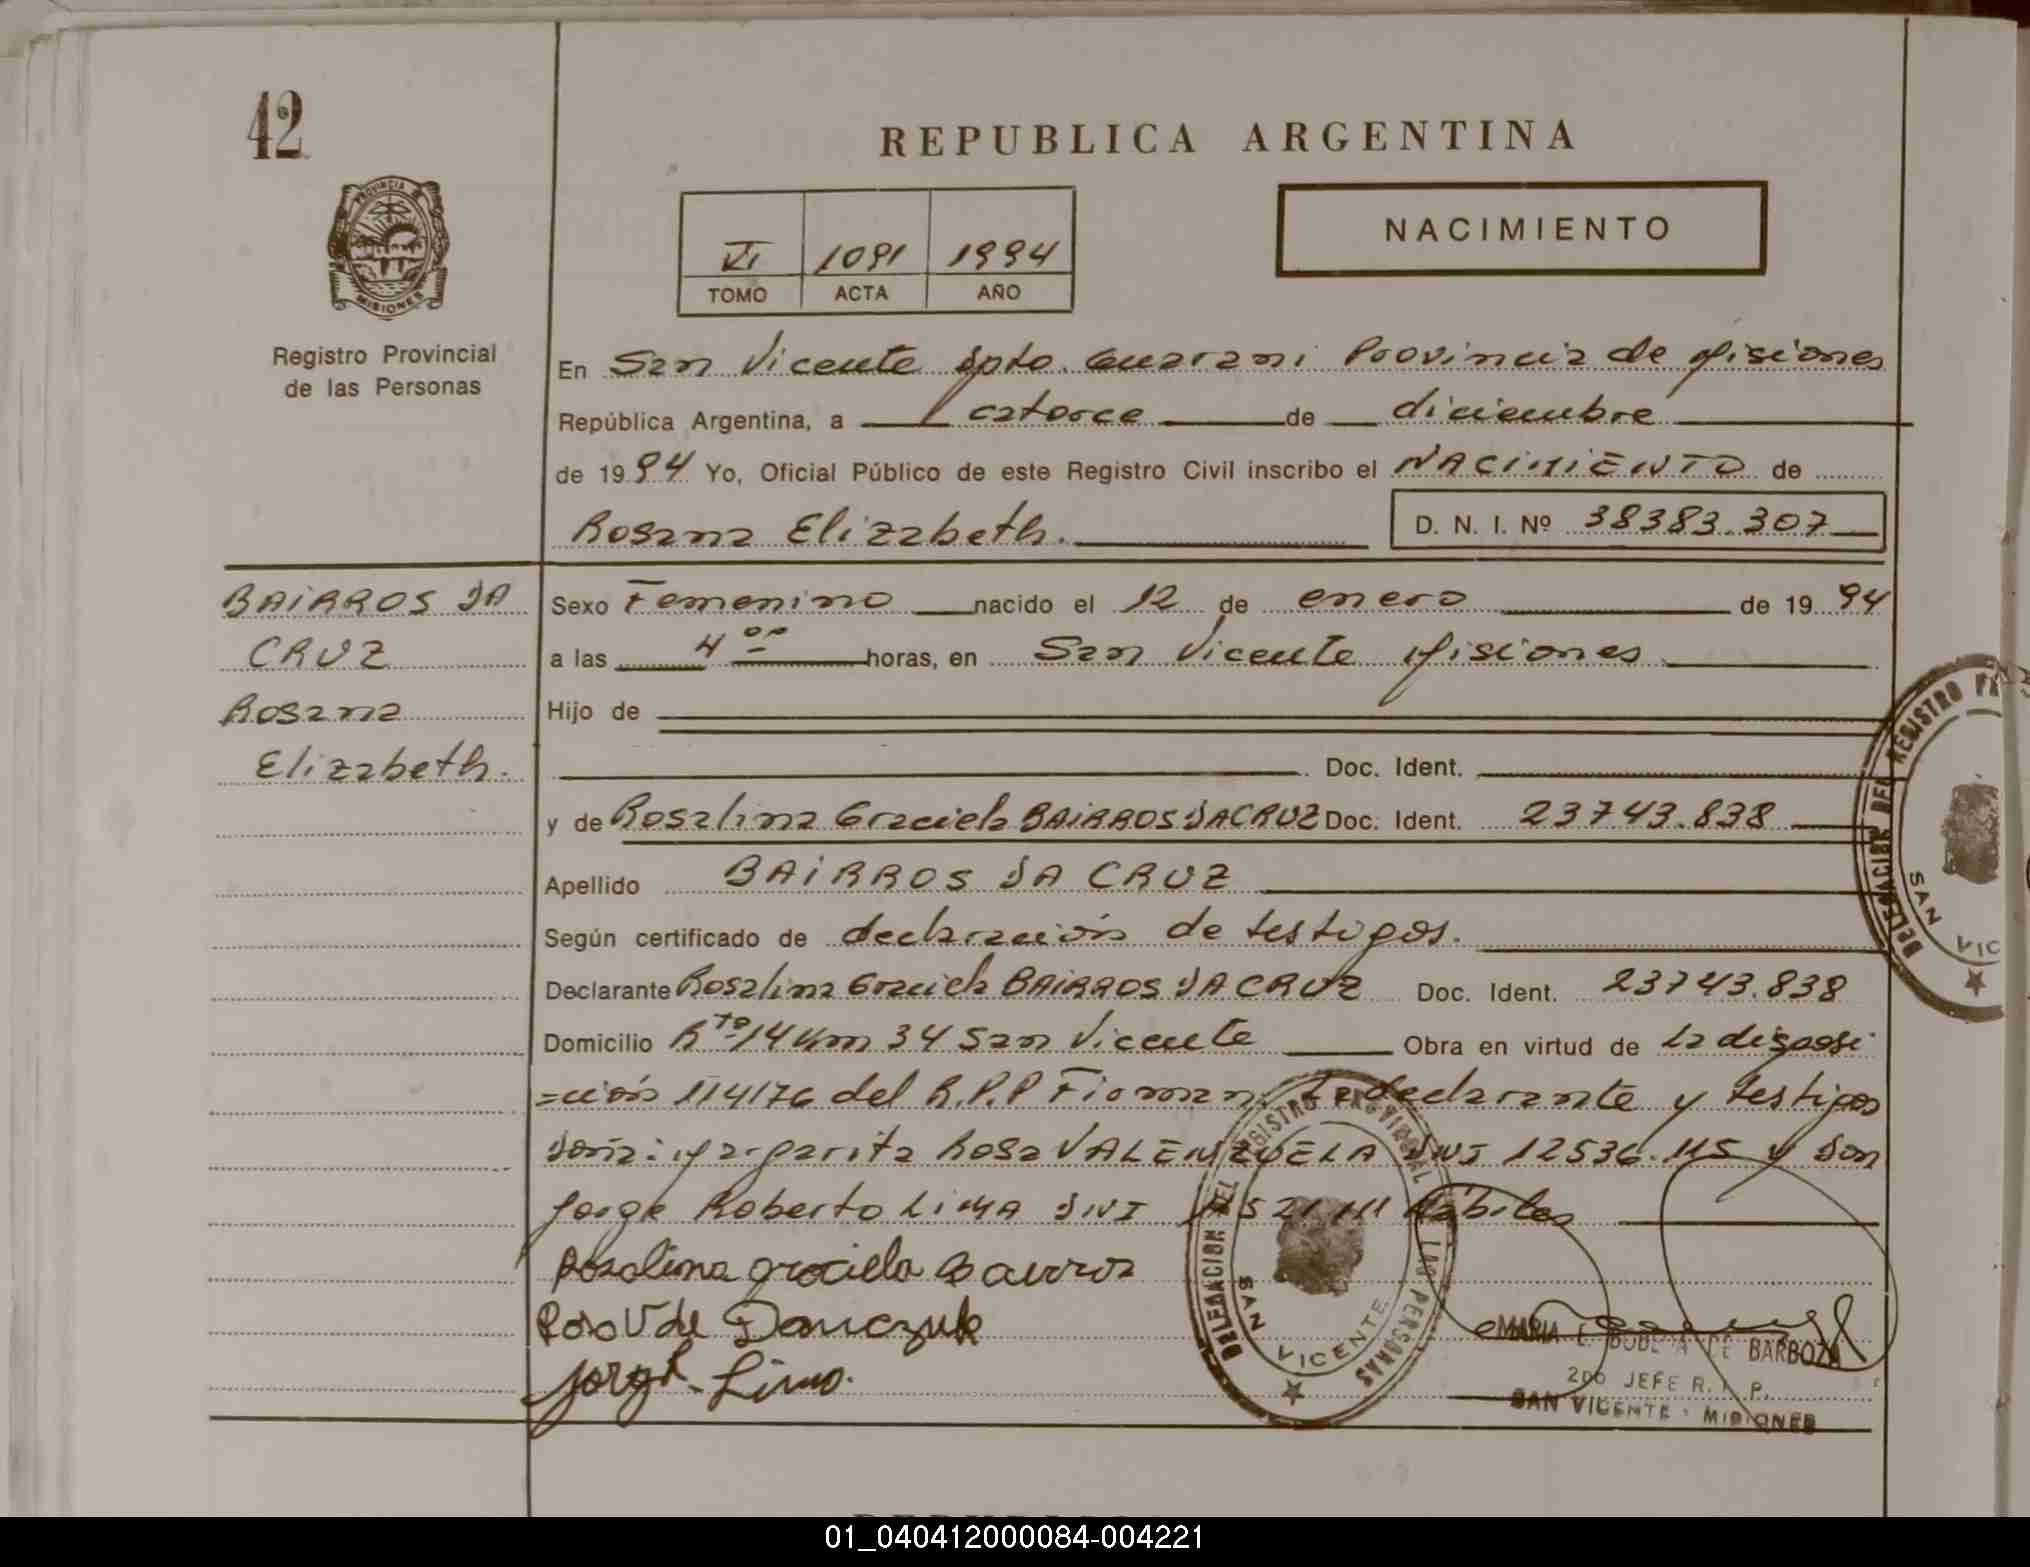 42
REPUBLICA ARGENTINA
NACIMIENTO
VI 1091 1994
TOMO ACTA AÑO
PROVINCIA DE
MISIONES
Registro Provincial
de las Personas
En San Vicente Dpto. Guarani Provincia de Misiones
República Argentina, a catorce de diciembre
de 1994 Yo, Oficial Público de este Registro Civil inscribo el NACIMIENTO de
Rosana Elizabeth. D. N. I. Nº 38383.307
BAIRROS DA
CRUZ
Rosana
Elizabeth.
Sexo Femenino nacido el 12 de enero de 1994
a las 4 00 horas, en San Vicente Misiones
Hijo de
Doc. Ident.
y de Rosalina Graciela BAIRROS DA CRUZ Doc. Ident. 23743.838
Apellido BAIRROS DA CRUZ
Según certificado de declaración de testigos.
Declarante Rosalina Graciela BAIRROS DA CRUZ Doc. Ident. 23743.838
Domicilio Rta 14 Km 34 San Vicente Obra en virtud de la disposi
=ción 114/76 del R.P.P Firman: La declarante y testigos
Doña: Margarita Rosa VALENZUELA DNI 12536.115 y Don
Jorge Roberto LIMA DNI Hábiles
Rosalina graciela Bairros
Rosa V de Danczuk
Jorge Lima.
DELEGACION DEL REGISTRO PROVINCIAL DE LAS PERSONAS
SAN VICENTE
MARIA E. DE BARBOZA
2DO JEFE R. P. P.
SAN VICENTE - MISIONES
DELEGACION DEL REGISTRO
SAN VIC
01_040412000084-004221